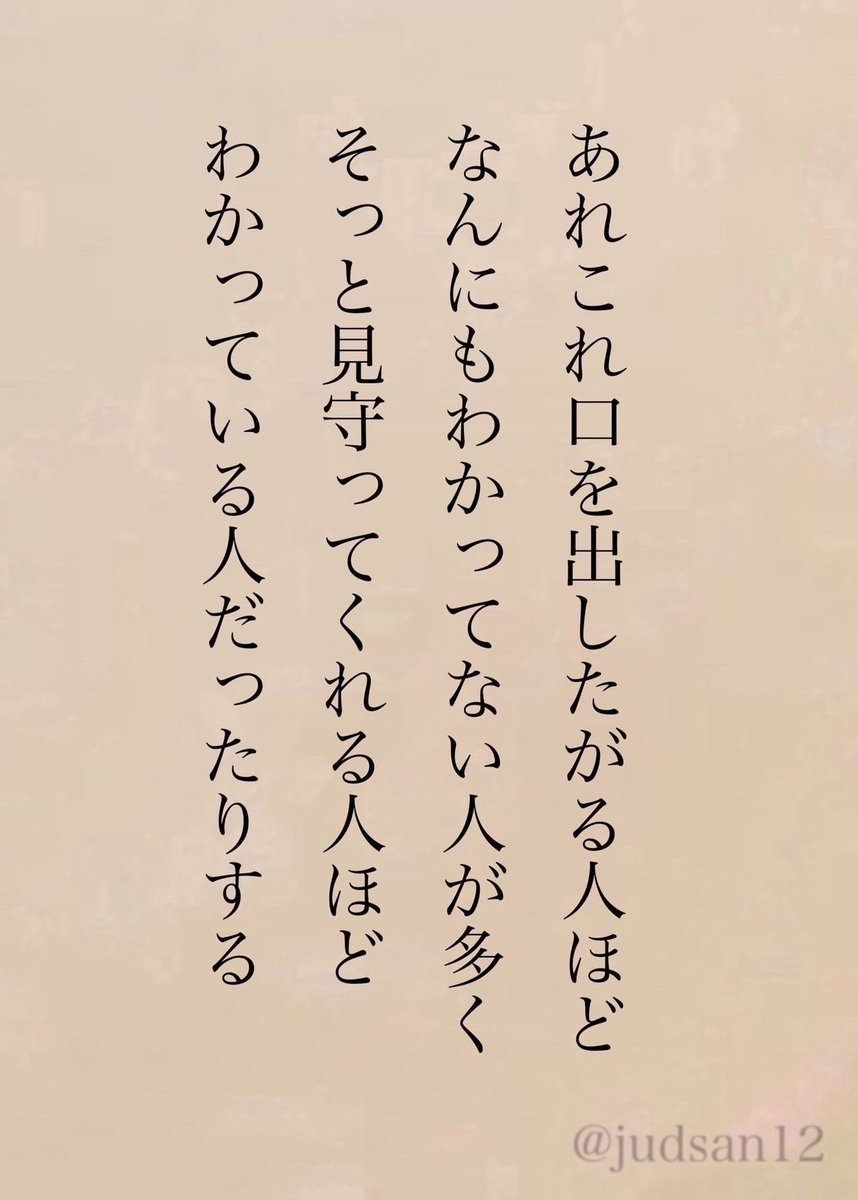 あれこれ口を出したがる人ほど
なんにもわかってない人が多く
そっと見守ってくれる人ほど
わかっている人だったりする
@judsan12